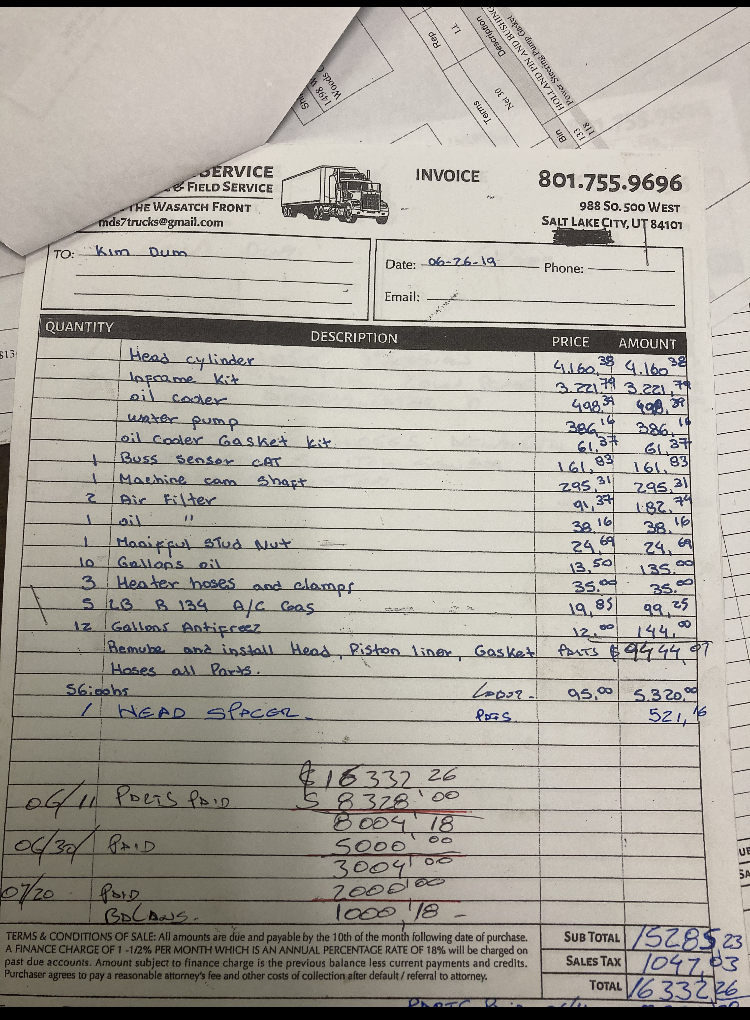 Woods
1498 W
Rep
Lt
Terms
Net 30
Description
HOLLAND PIN AND BUSHING
Power Steering Pump Gasket
Bin
118
133
SERVICE
& FIELD SERVICE
THE WASATCH FRONT
mds7trucks@gmail.com
INVOICE
801.755.9696
988 SO. 500 WEST
SALT LAKE CITY, UT 84101
TO: Kim Dum
Date: 06-26-19 Phone:
Email:
QUANTITY DESCRIPTION PRICE AMOUNT
Head cylinder 4.160,38 4.160,38
Inframe Kit 3.221,79 3.221,79
oil cooler 498,39 498,39
water pump 386,16 386,16
oil cooler Gasket kit. 61,37 61,37
1 Buss sensor CAT 161,83 161,83
1 Machine cam shaft 295,31 295,31
2 Air Filter 91,37 182,74
1 oil " 38,16 38,16
1 Stud Nut 24,69 24,69
10 Gallons oil 13,50 135.00
3 Heater hoses and clamps 35.00 35.00
5 LB R 134 A/C Gas 19,85 99,25
12 Gallons Antifreez 12,00 144,00
Remube and install Head, Piston liner, Gasket PARTS $ 9444,07
Hoses all Parts.
56:oohs Labor - 95,00 5.320,00
1 HEAD SPACER PRTS. 521,16
$ 16332 26
06/11 PARTS PAID $ 8328'00
8004'18
06/30/ PAID 5000'00
3004'00
07/20 PAID 2000'00
BALANS. 1000'18 -
TERMS & CONDITIONS OF SALE: All amounts are due and payable by the 10th of the month following date of purchase.
A FINANCE CHARGE OF 1 -1/2% PER MONTH WHICH IS AN ANNUAL PERCENTAGE RATE OF 18% will be charged on
past due accounts. Amount subject to finance charge is the previous balance less current payments and credits.
Purchaser agrees to pay a reasonable attorney's fee and other costs of collection after default / referral to attorney.
SUB TOTAL 15285,23
SALES TAX 1047,03
TOTAL 16332,26